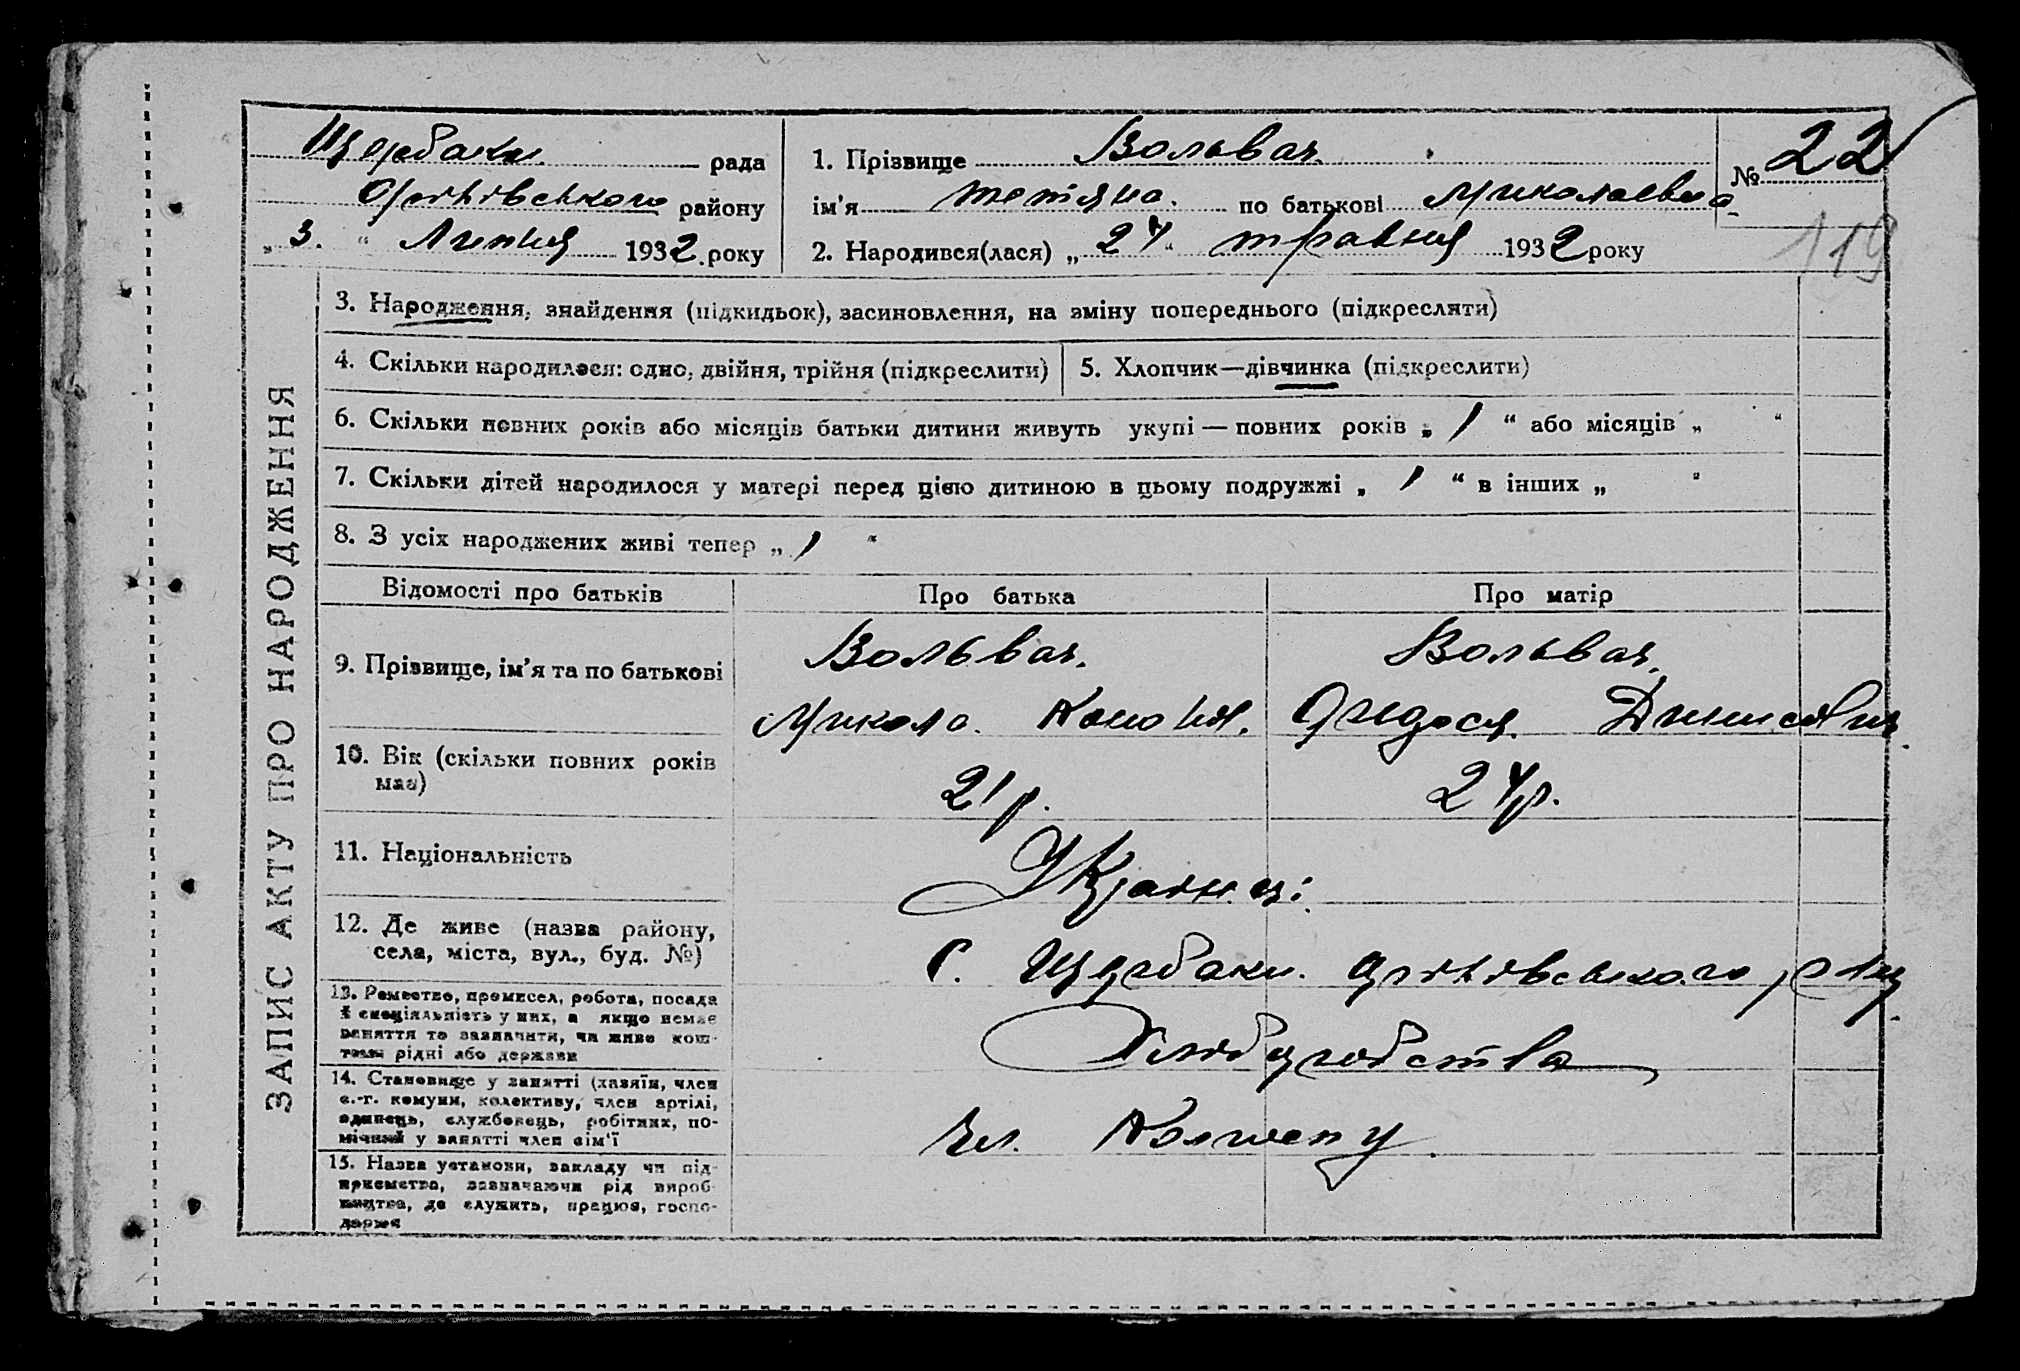 Щербаки рада
Оріхівського району
„ 3. “ Липня 1932 року
1. Прізвище Вольвач.
ім'я Тетяна. по батькові Миколаевна
2. Народився(лася) „ 24 “ травня 1932 року
№ 22
119
ЗАПИС АКТУ ПРО НАРОДЖЕННЯ
3. Народження, знайдення (підкидьок), засиновлення, на зміну попереднього (підкресляти)
4. Скільки народилося: одно, двійня, трійня (підкреслити)
5. Хлопчик—дівчинка (підкреслити)
6. Скільки повних років або місяців батьки дитини живуть укупі — повних років „ 1 “ або місяців „ “
7. Скільки дітей народилося у матері перед цією дитиною в цьому подружжі „ 1 “ в інших „ “
8. З усіх народжених живі тепер „ 1 “
Відомості про батьків Про батька Про матір
9. Прізвище, ім'я та по батькові
Вольвач. Вольвач.
Микола.
10. Вік (скільки повних років
має)
21 р. 24 р.
11. Національність
Українці
12. Де живе (назва району,
села, міста, вул., буд. №)
С. Щербаки. Оріхівського р-ну
13. Ремество, промисел, робота, посада
й спеціяльність у них, а якщо немає
заняття то зазначити, чи живе кош-
тами рідні або держави
Хлібуробства
14. Становище у занятті (хазяїн, член
с.-г. комуни, колективу, член артілі,
одинець, службовець, робітник, по-
мічний у занятті член сім'ї
чл. Колгоспу
15. Назва установи, закладу чи під-
приємства, зазначаючи рід вироб-
ництва, де служить, працює, госпо-
дарює